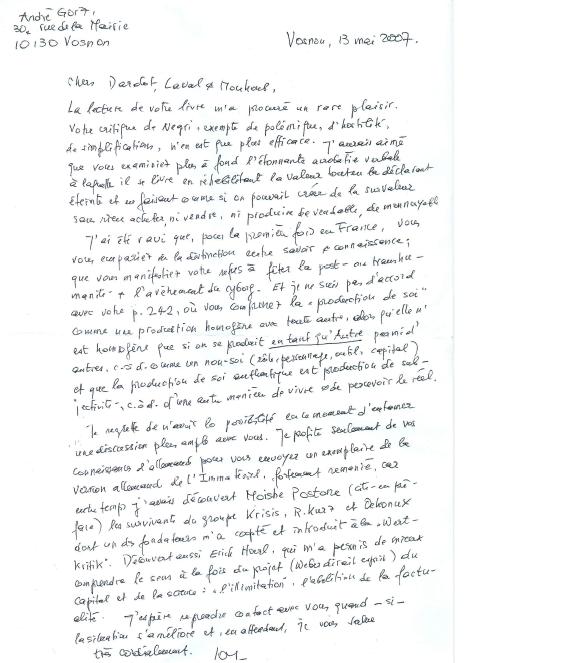 André Gorz,
30, rue de la Mairie
10130 Vosnon
Vosnon, 13 mai 2007.
Chers Dardot, Laval & Mouhoud,
La lecture de votre livre m'a procuré un rare plaisir.
Votre critique de Negri, exempte de polémique, d'hostilité,
de simplifications, n'en est que plus efficace. J'aurais aimé
que vous examiniez plus à fond l'étonnante acrobatie verbale
à laquelle il se livre en réhabilitant la valeur tout en la déclarant
éteinte et en faisant comme si on pouvait créer de la survaleur
sans rien acheter, ni vendre, ni produire de vendable, de monnayable
J'ai été ravi que, pour la première fois en France, vous
vous empariez de la distinction entre savoir & connaissance;
que vous manifestiez votre refus à fêter la post- ou transhu-
manité & l'avènement du cyborg. Et je ne suis pas d'accord
avec votre p. 242, où vous comprenez la "production de soi"
comme une production homogène avec toute autre, alors qu'elle n'
est homogène que si on se produit en tant qu'Autre parmi d'
autres, c.-à.d. comme un non-soi (rôle, personnage, outil, capital)
et que la production de soi authentique est production de sub-
jectivité, c.à.d. d'une autre manière de vivre & de percevoir le réel.
Je regrette de n'avoir la possibilité en ce moment d'entamer
une discussion plus ample avec vous. Je profite seulement de vos
connaissances d'allemand pour vous envoyer un exemplaire de la
version allemande de l'Immatériel, fortement remaniée, car
entre temps j'avais découvert Moishe Postone (cité en pré-
face) les survivants du groupe Krisis, R. Kurz et
dont un des fondateurs m'a capté et introduit à la "Wert-
kritik". Découvert aussi Erich Hörl, qui m'a permis de mieux
comprendre le sens à la fois du projet (Weber dirait esprit) du
capital et de la science: "l'illimitation", l'abolition de la factu-
alité. J'espère reprendre contact avec vous quand - si -
la situation s'améliore et, en attendant, je vous salue
très cordialement.